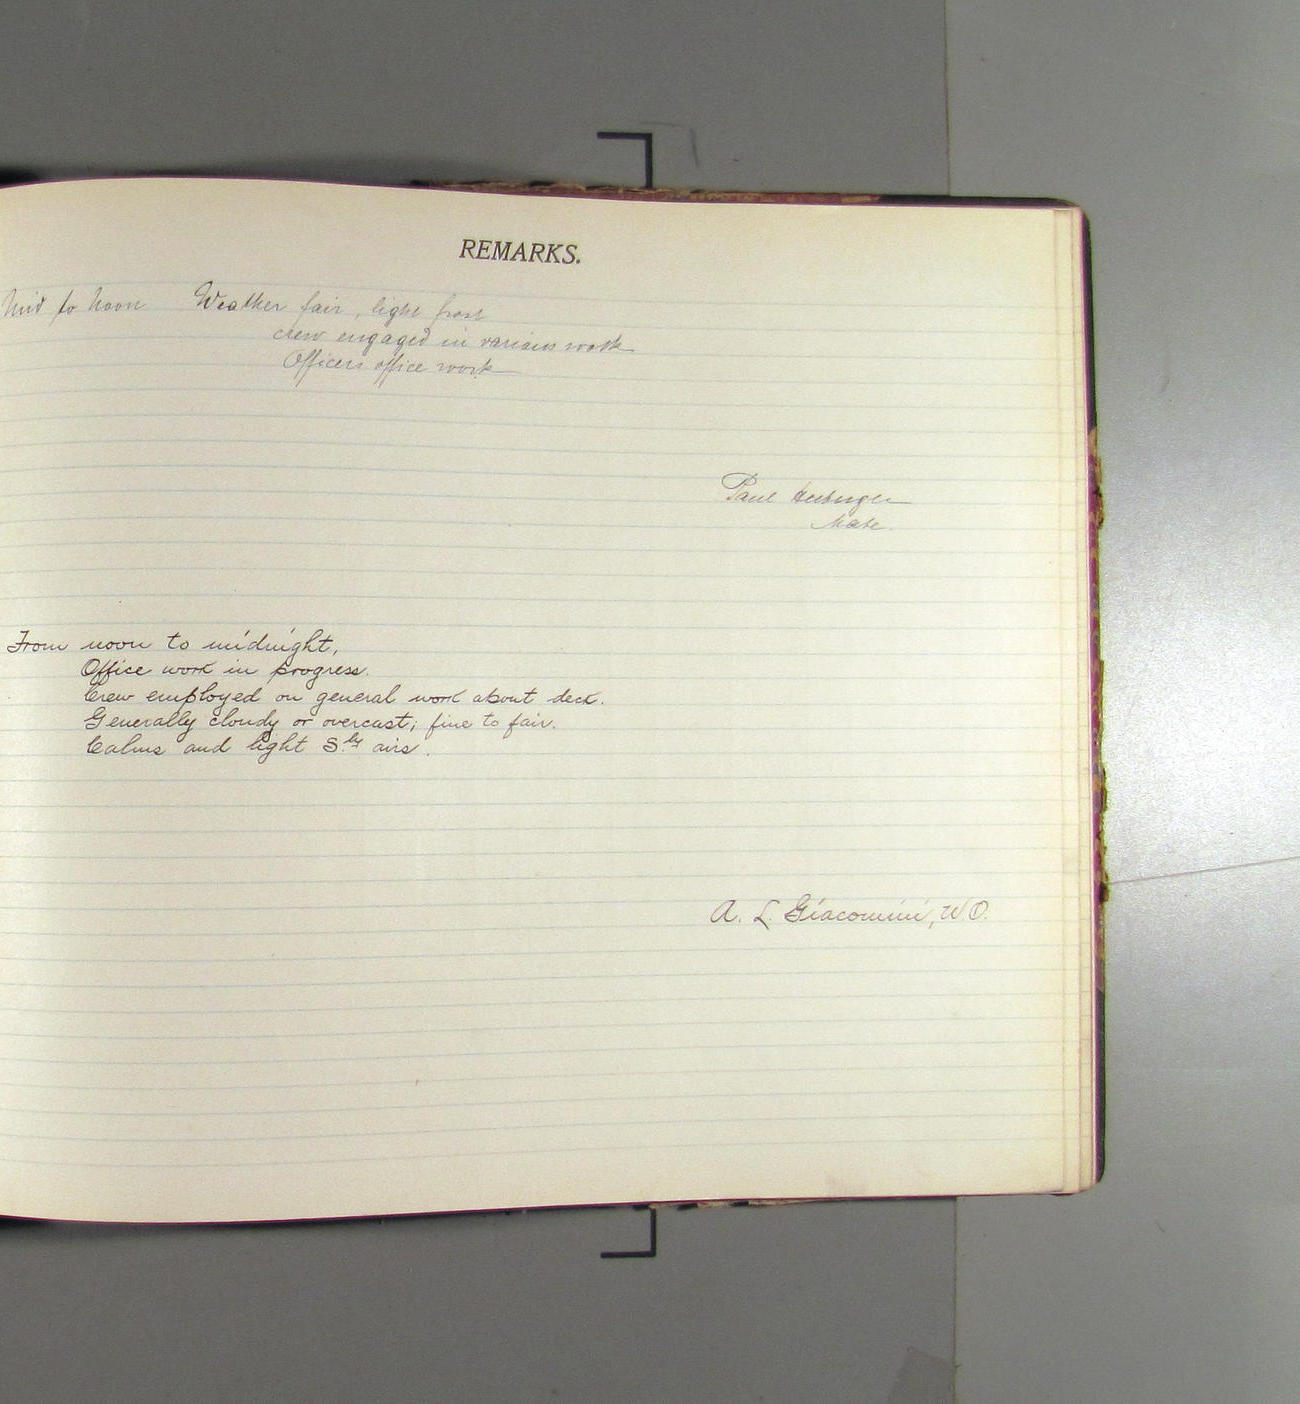 REMARKS.
Mid to Noon Weather fair, light frost
crew engaged in various work
Officers office work
Paul
Mate.
From noon to midnight,
Office work in progress.
Crew employed on general work about deck.
Generally cloudy or overcast; fine to fair.
Calms and light S.ly airs.
A. L. Giacomini, W O.